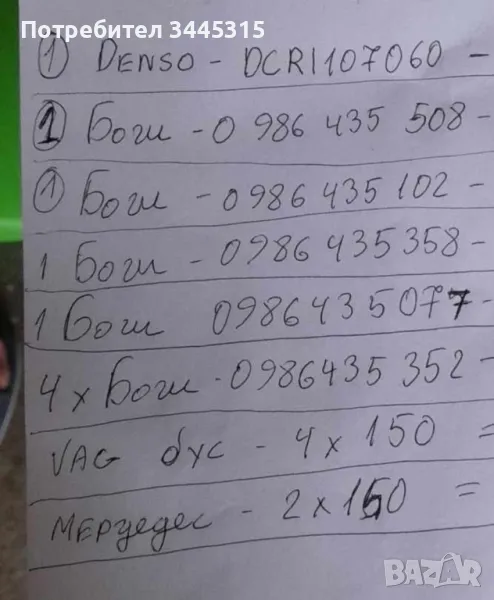 Потребител 3445315
① DENSO - DCRI107060 -
① Бош - 0 986 435 508 -
① Бош - 0986 435 102 -
1 Бош - 0986 435358 -
1 Бош 0986435077 -
4 x Бош - 0986435 352 -
VAG бус - 4 x 150 =
МЕРцедес - 2 x 150 =
BAZAR
bg